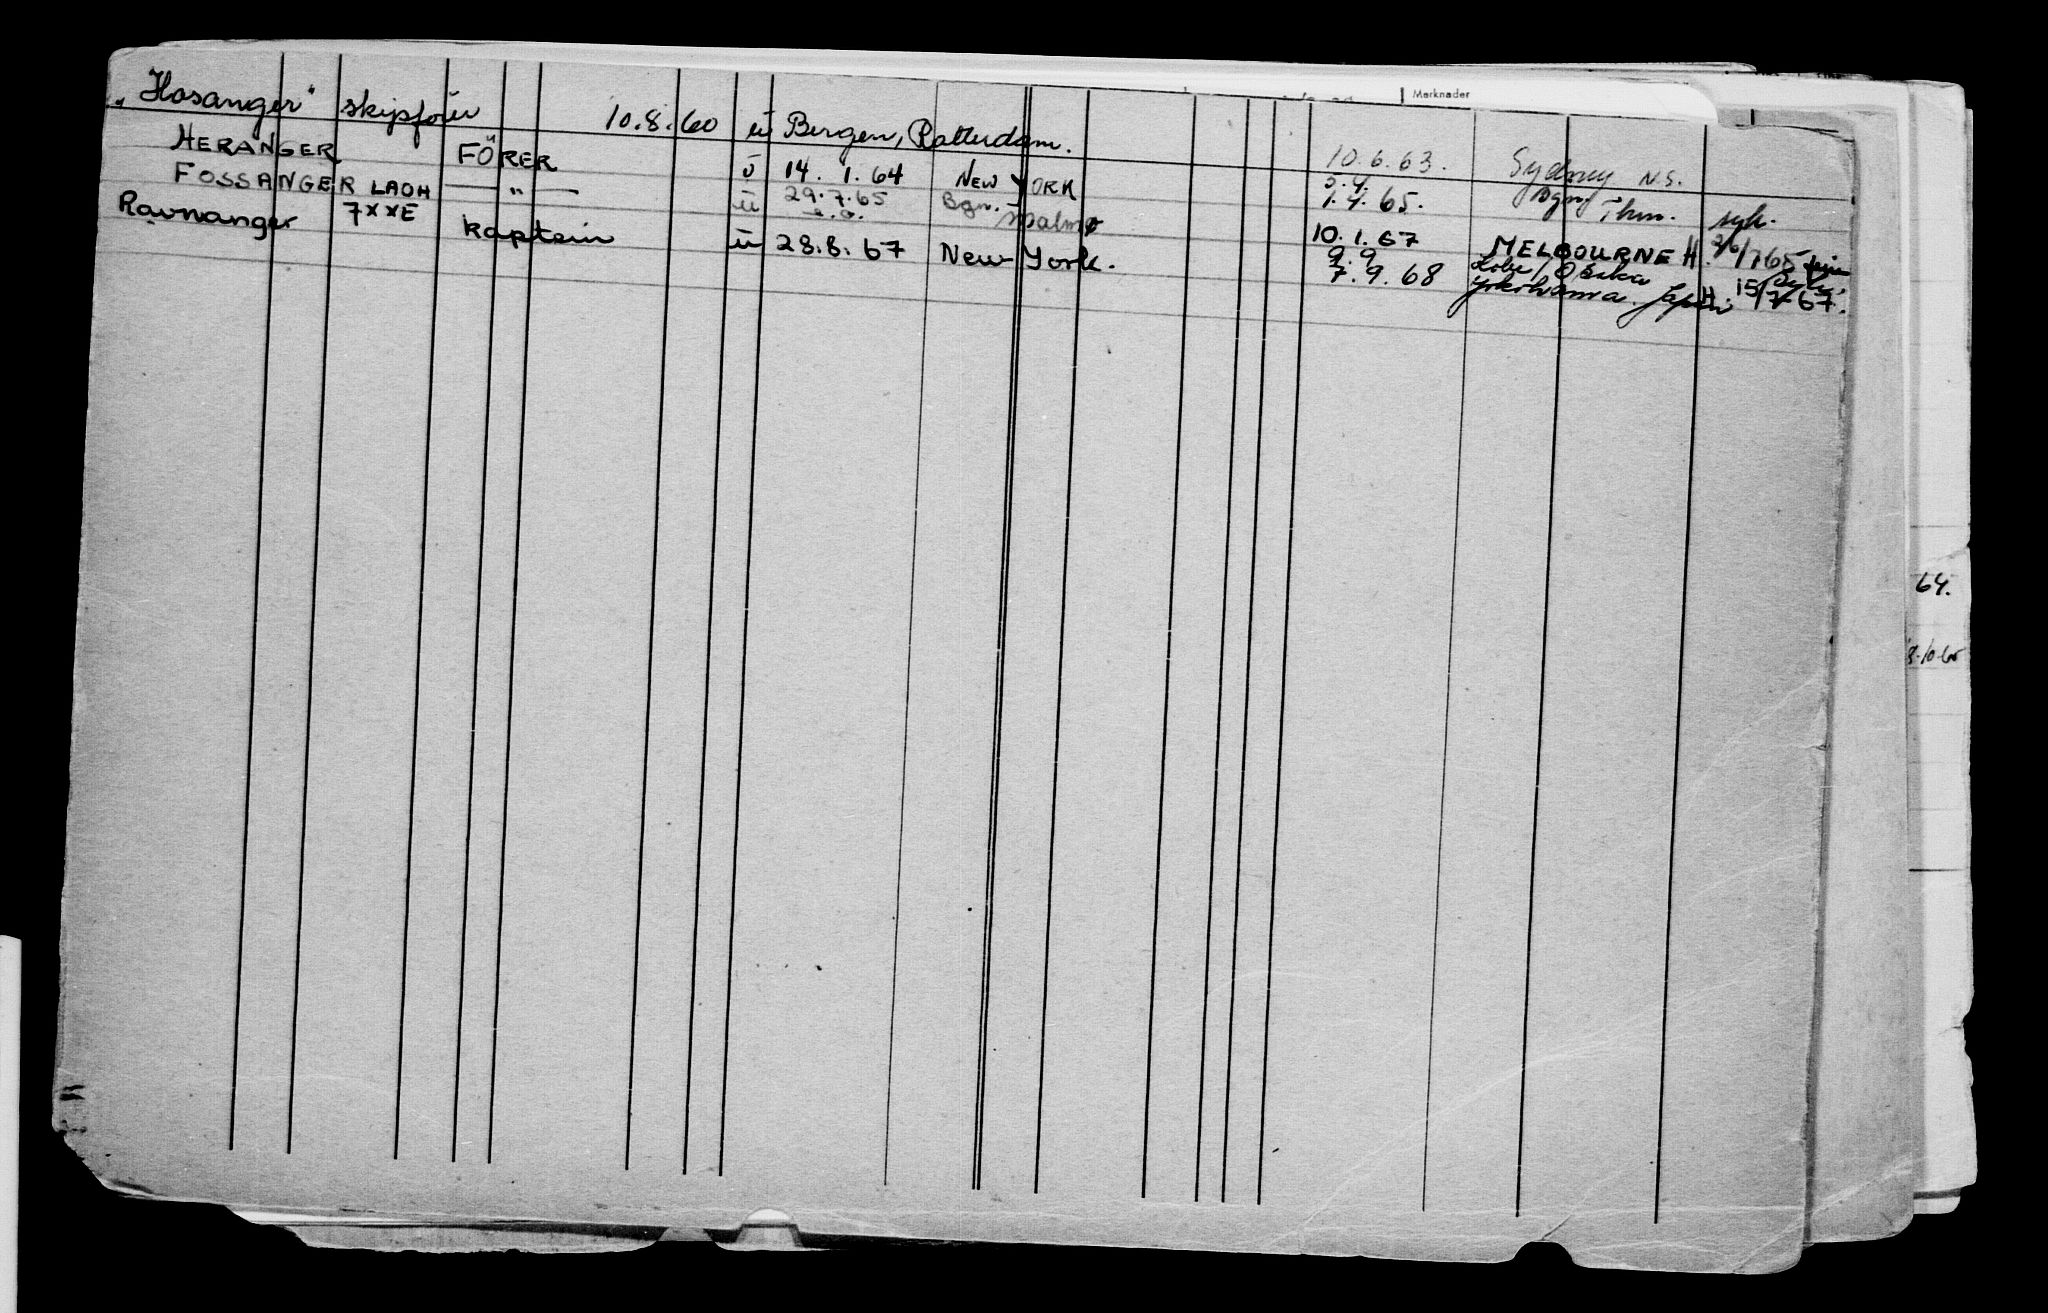 Merknader
"Hosanger" skipfører 10.8.60 ü Bergen, Rotterdam. 10.6.63. Sydney N.S.
HERANGER FÖRER ü 14.1.64 NEW YORK 5.4. 1.4.65. Bgn. Thm. syk.
FOSSANGER LAOH — " — ü 29.7.65 Bgn. - Malmø 10.1.67 MELBOURNE H. 2/6/765
Ravnanger 7XXE kaptein ü 28.8.67 New York. 9.9 7.9.68 Kobe / Osaka Yokohama. Japan H. 15/7-67.
64.